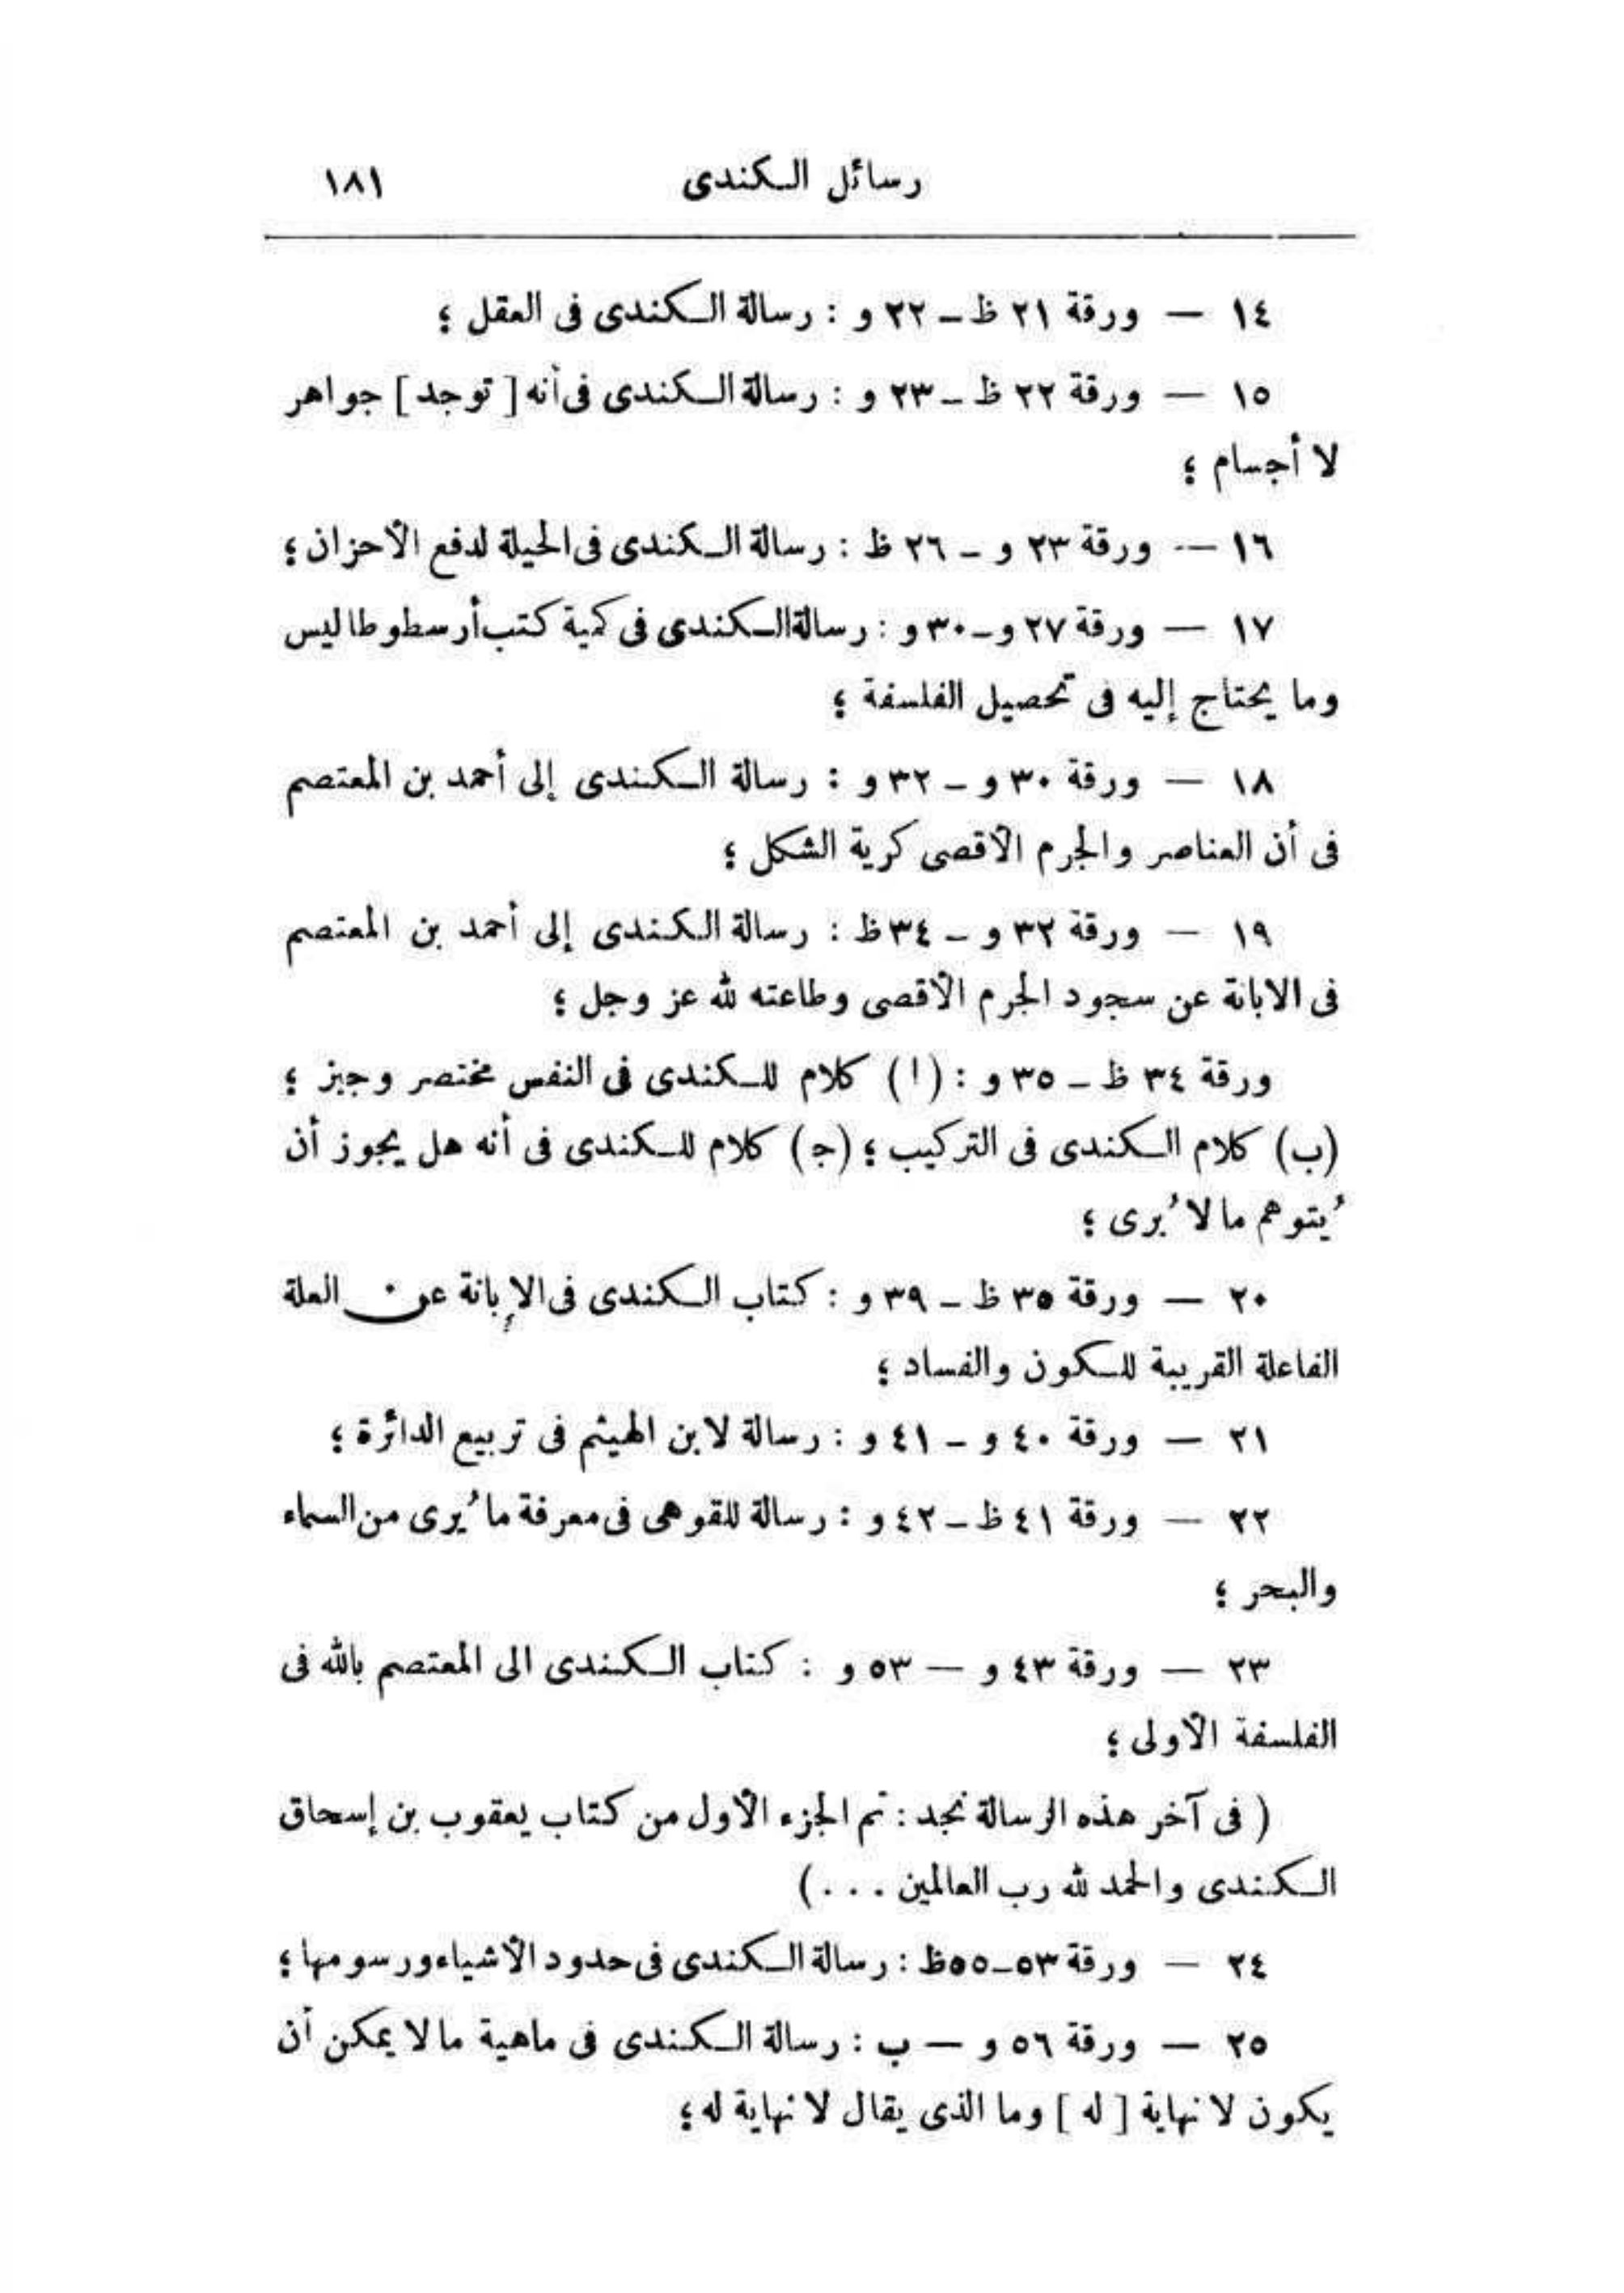 رسائل الكندى ١٨١
١٤ — ورقة ٢١ ظ – ٢٢ و : رسالة الكندى فى العقل ؛
١٥ — ورقة ٢٢ ظ – ٢٣ و : رسالة الكندى فى أنه [ توجد ] جواهر
لا أجسام ؛
١٦ — ورقة ٢٣ و – ٢٦ ظ : رسالة الكندى فى الحيلة لدفع الأحزان ؛
١٧ — ورقة ٢٧ و – ٣٠ و : رسالة الكندى فى كمية كتب أرسطوطاليس
وما يحتاج إليه فى تحصيل الفلسفة ؛
١٨ — ورقة ٣٠ و – ٣٢ و : رسالة الكندى إلى أحمد بن المعتصم
فى أن العناصر والجرم الأقصى كرية الشكل ؛
١٩ — ورقة ٣٢ و – ٣٤ ظ : رسالة الكندى إلى أحمد بن المعتصم
فى الابانة عن سجود الجرم الأقصى وطاعته لله عز وجل ؛
ورقة ٣٤ ظ – ٣٥ و : (ا) كلام للكندى فى النفس مختصر وجيز ؛
(ب) كلام الكندى فى التركيب ؛ (ج) كلام للكندى فى أنه هل يجوز أن
يُتوهم ما لا يُرى ؛
٢٠ — ورقة ٣٥ ظ – ٣٩ و : كتاب الكندى فى الإبانة عن العلة
الفاعلة القريبة للكون والفساد ؛
٢١ — ورقة ٤٠ و – ٤١ و : رسالة لابن الهيثم فى تربيع الدائرة ؛
٢٢ — ورقة ٤١ ظ – ٤٢ و : رسالة للقوهى فى معرفة ما يُرى من السماء
والبحر ؛
٢٣ — ورقة ٤٣ و — ٥٣ و : كتاب الكندى الى المعتصم بالله فى
الفلسفة الأولى ؛
( فى آخر هذه الرسالة نجد : تم الجزء الأول من كتاب يعقوب بن إسحاق
الكندى والحمد لله رب العالمين . . . )
٢٤ — ورقة ٥٣–٥٥ظ : رسالة الكندى فى حدود الأشياء ورسومها ؛
٢٥ — ورقة ٥٦ و — ب : رسالة الكندى فى ماهية ما لا يمكن أن
يكون لا نهاية [ له ] وما الذى يقال لا نهاية له ؛